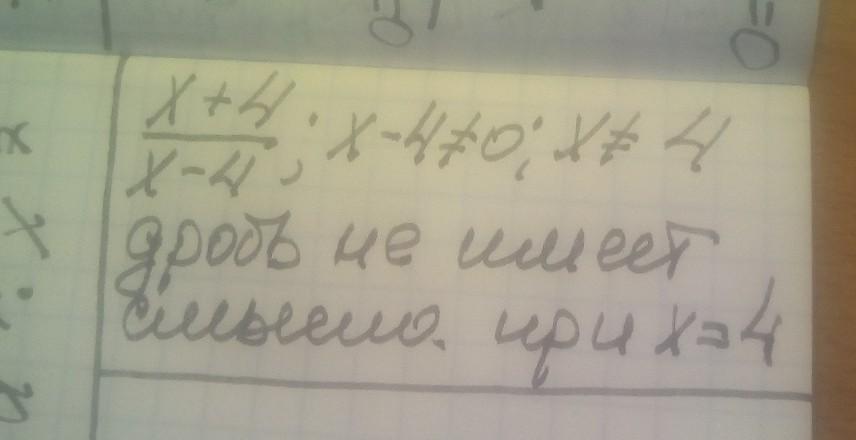 x+4/x-4; x-4≠0; x≠4
дробь не имеет
смысла при x=4